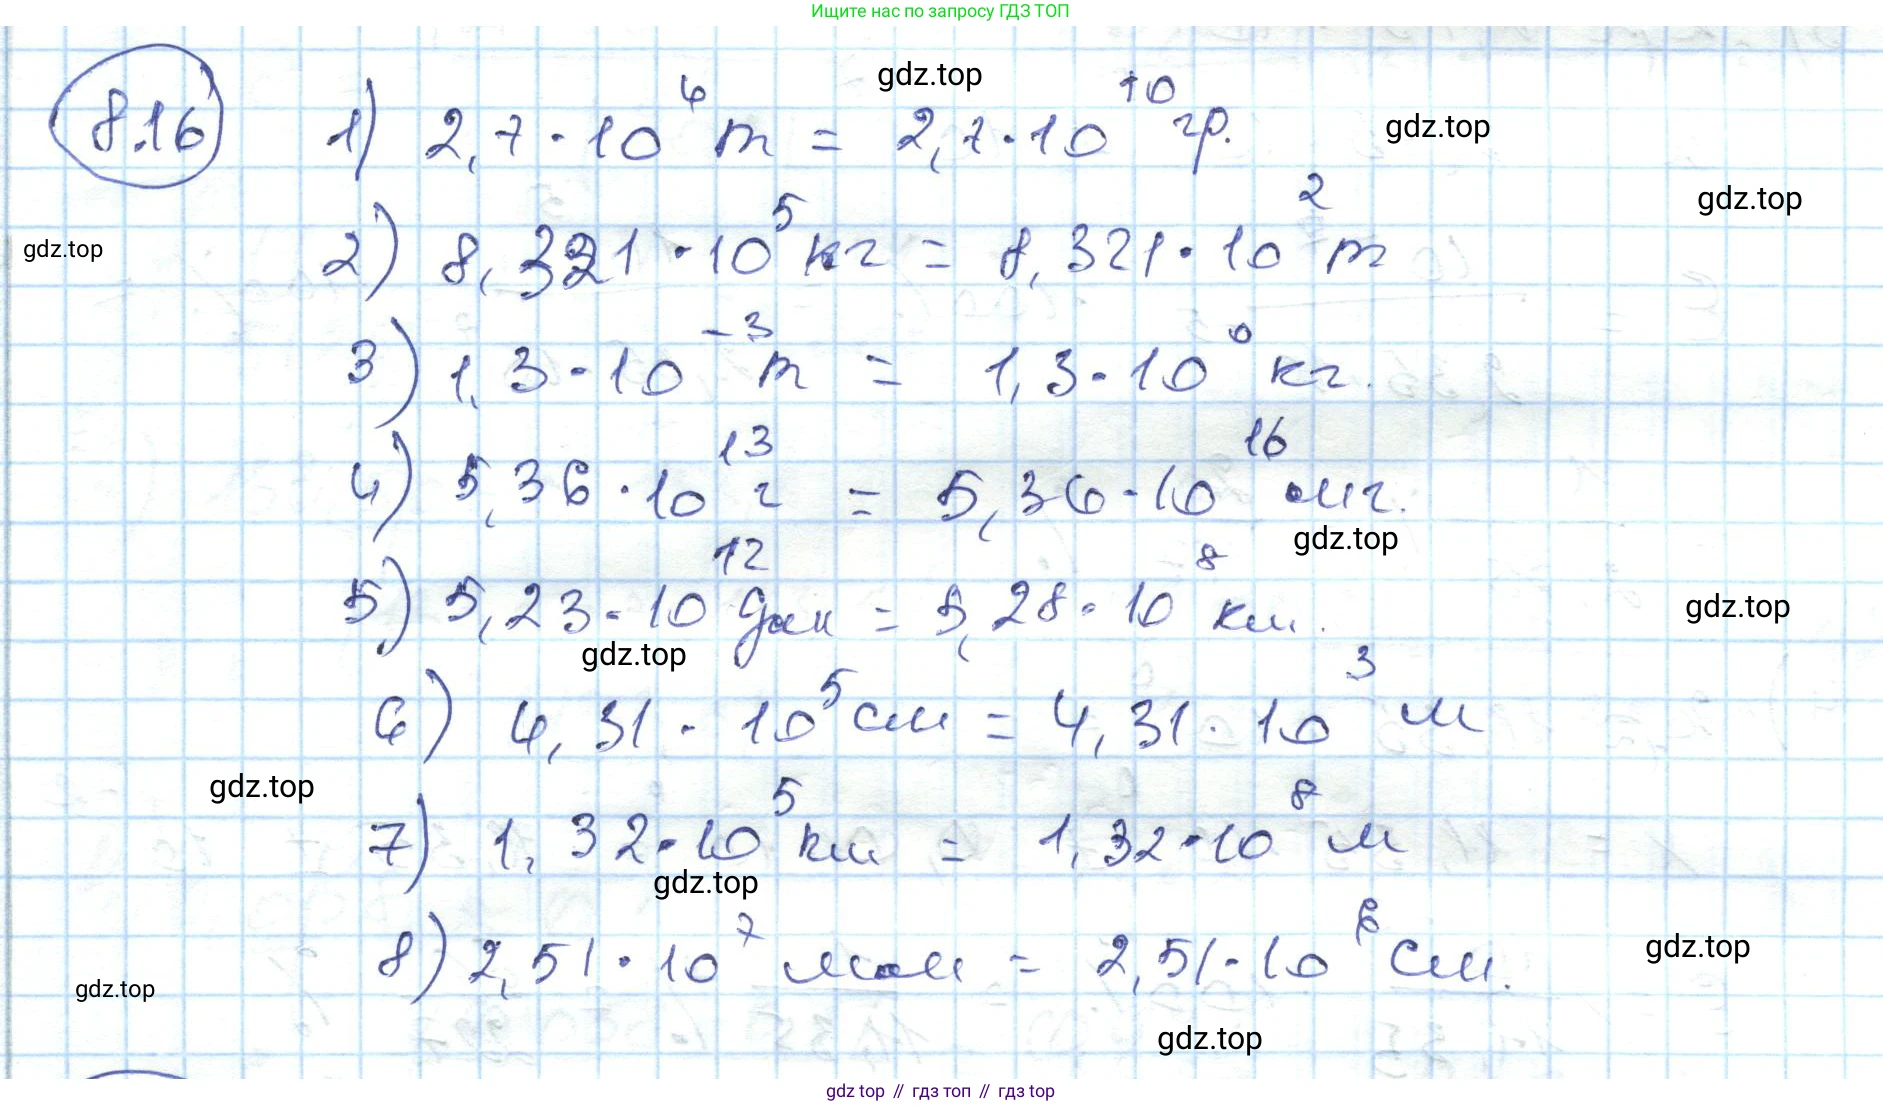 Ищите нас по запросу ГДЗ ТОП
8.16 1) 2,7 · 10⁴ т = 2,7 · 10¹⁰ гр.
gdz.top
gdz.top
gdz.top
2) 8,321 · 10⁵ кг = 8,321 · 10² т
gdz.top
3) 1,3 · 10⁻³ т = 1,3 · 10⁰ кг.
4) 5,36 · 10¹³ г = 5,36 · 10¹⁶ мг.
gdz.top
5) 5,23 · 10¹² дм = 5,28 · 10⁸ км.
gdz.top
gdz.top
6) 4,31 · 10⁵ см = 4,31 · 10³ м
gdz.top
7) 1,32 · 10⁵ км = 1,32 · 10⁸ м
gdz.top
8) 2,51 · 10⁷ мм = 2,51 · 10⁶ см.
gdz.top
gdz.top
gdz.top
gdz top // гдз топ // гдз top